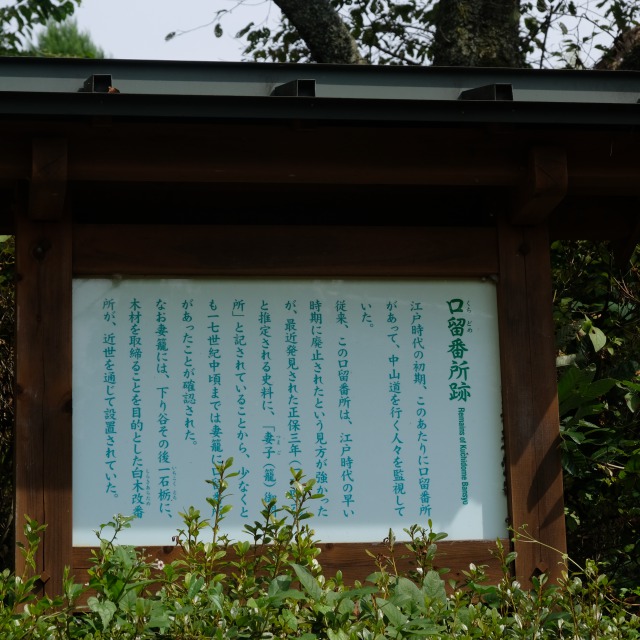 口留番所跡
くち どめ
Remains of Kuchidome Bansyo
江戸時代の初期、このあたりに口留番所
があって、中山道を行く人々を監視して
いた。
従来、この口留番所は、江戸時代の早い
時期に廃止されたという見方が強かった
が、最近発見された正保三年
と推定される史料に、「妻子(籠)御
所」と記されていることから、少なくと
も一七世紀中頃までは妻籠に
があったことが確認された。
なお妻籠には、下り谷その後一石栃に、
木材を取締ることを目的とした白木改番
所が、近世を通じて設置されていた。